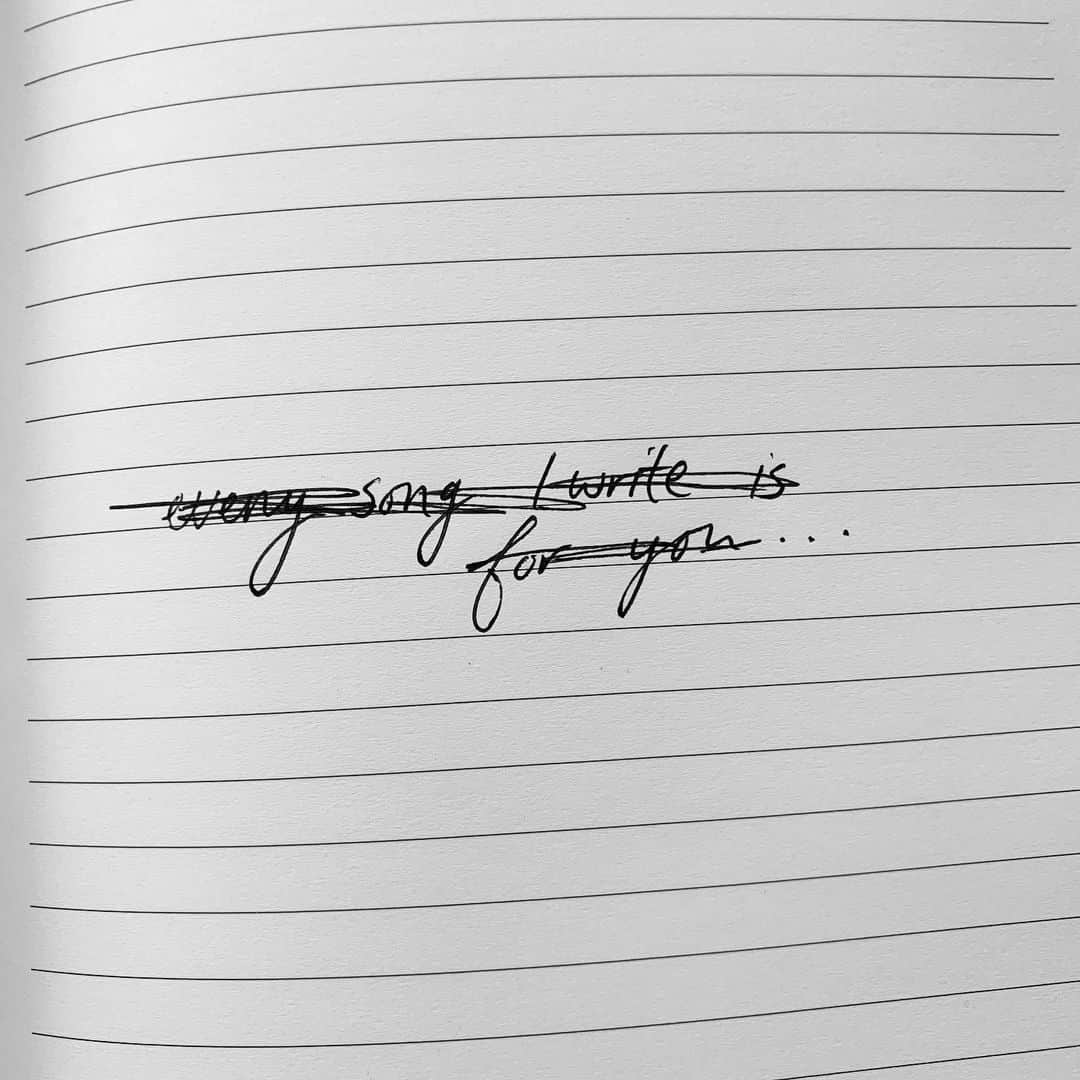 every song I write is
for you...